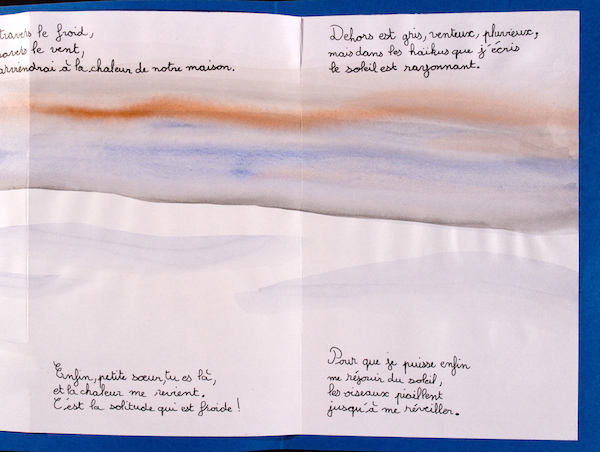 travers le froid,
travers le vent,
arriendrai à la chaleur de notre maison.
Dehors est gris, venteux, pluvieux,
mais dans les haïkus que j'écris
le soleil est rayonnant.
Enfin, petite sœur, tu es là,
et la chaleur me revient.
C'est la solitude qui est froide !
Pour que je puisse enfin
me réjouir du soleil,
les oiseaux piaillent
jusqu'à me réveiller.